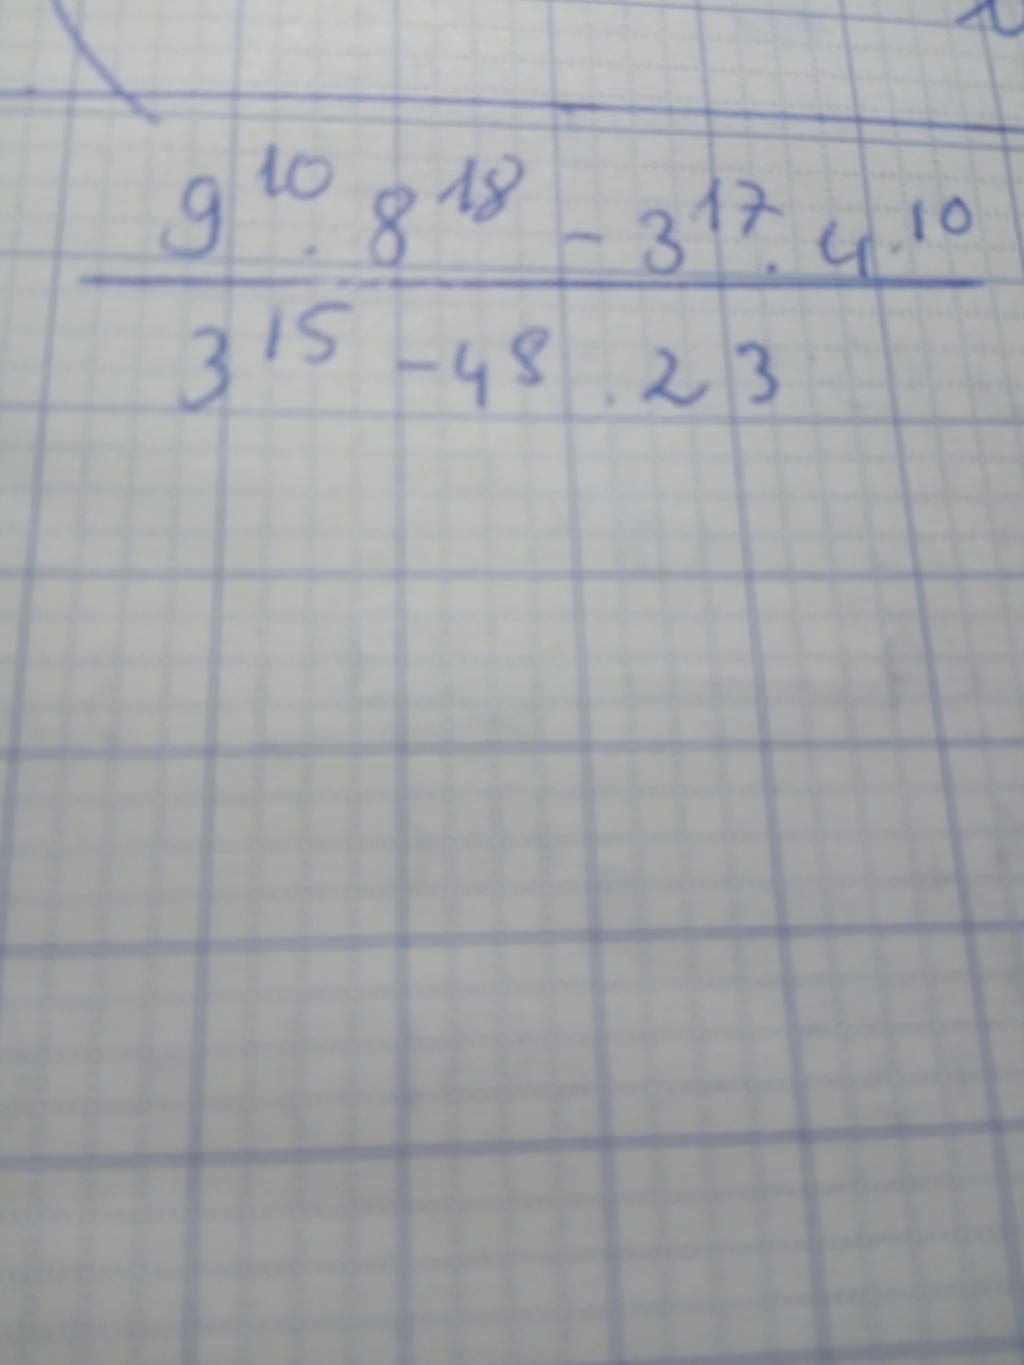 9^10 . 8^18 - 3^17 . 4^10
3^15 - 48 . 23